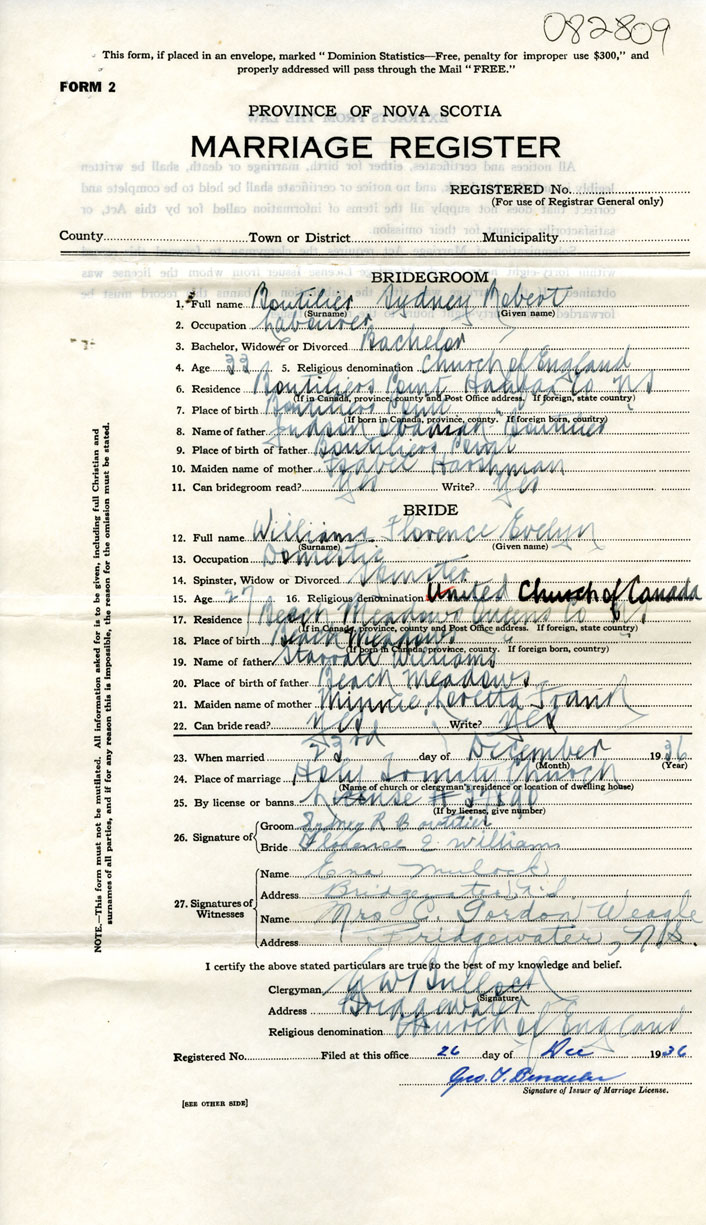 082809
This form, if placed in an envelope, marked "Dominion Statistics—Free, penalty for improper use $300," and
properly addressed will pass through the Mail "FREE."
FORM 2
PROVINCE OF NOVA SCOTIA
MARRIAGE REGISTER
REGISTERED No.
(For use of Registrar General only)
County Town or District Municipality
BRIDEGROOM
1. Full name Boutilier Sydney Robert
(Surname) (Given name)
2. Occupation Labourer
3. Bachelor, Widower or Divorced Bachelor
4. Age 33 5. Religious denomination Church of England
6. Residence Boutiliers Point Halifax Co NS
(If in Canada, province, county and Post Office address. If foreign, state country)
7. Place of birth Boutiliers Point
(If born in Canada, province, county. If foreign born, country)
8. Name of father Judson Obadiah Boutilier
9. Place of birth of father Boutiliers Point
10. Maiden name of mother Isabel Harshman
11. Can bridegroom read? Yes Write? Yes
BRIDE
12. Full name Williams Florence Evelyn
(Surname) (Given name)
13. Occupation Domestic
14. Spinster, Widow or Divorced Spinster
15. Age 27 16. Religious denomination United Church of Canada
17. Residence Beach Meadows Queens Co
(If in Canada, province, county and Post Office address. If foreign, state country)
18. Place of birth Beach Meadows
(If born in Canada, province, county. If foreign born, country)
19. Name of father Williams
20. Place of birth of father Beach Meadows
21. Maiden name of mother Minnie Loretta
22. Can bride read? Yes Write? Yes
23. When married 23rd day of December 1936
(Month) (Year)
24. Place of marriage Holy Trinity Church
(Name of church or clergyman's residence or location of dwelling house)
25. By license or banns License #
(If by license, give number)
26. Signature of Groom Sydney R Boutilier
Bride Florence E. Williams
27. Signatures of Witnesses
Name Ena Mulock
Address Bridgewater
Name Mrs C. Gordon Weagle
Address Bridgewater, N.S.
I certify the above stated particulars are true to the best of my knowledge and belief.
Clergyman G W Bullock
(Signature)
Address Bridgewater
Religious denomination Church of England
Registered No. Filed at this office 26 day of Dec 1936
Geo. T.
Signature of Issuer of Marriage License.
[SEE OTHER SIDE]
NOTE.—This form must not be mutilated. All information asked for is to be given, including full Christian and
surnames of all parties, and if for any reason this is impossible, the reason for the omission must be stated.